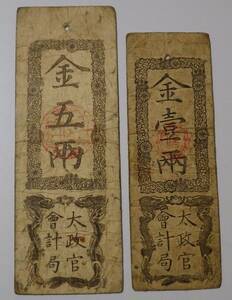 金五兩
太政官
會計局
金壹兩
太政官
會計局